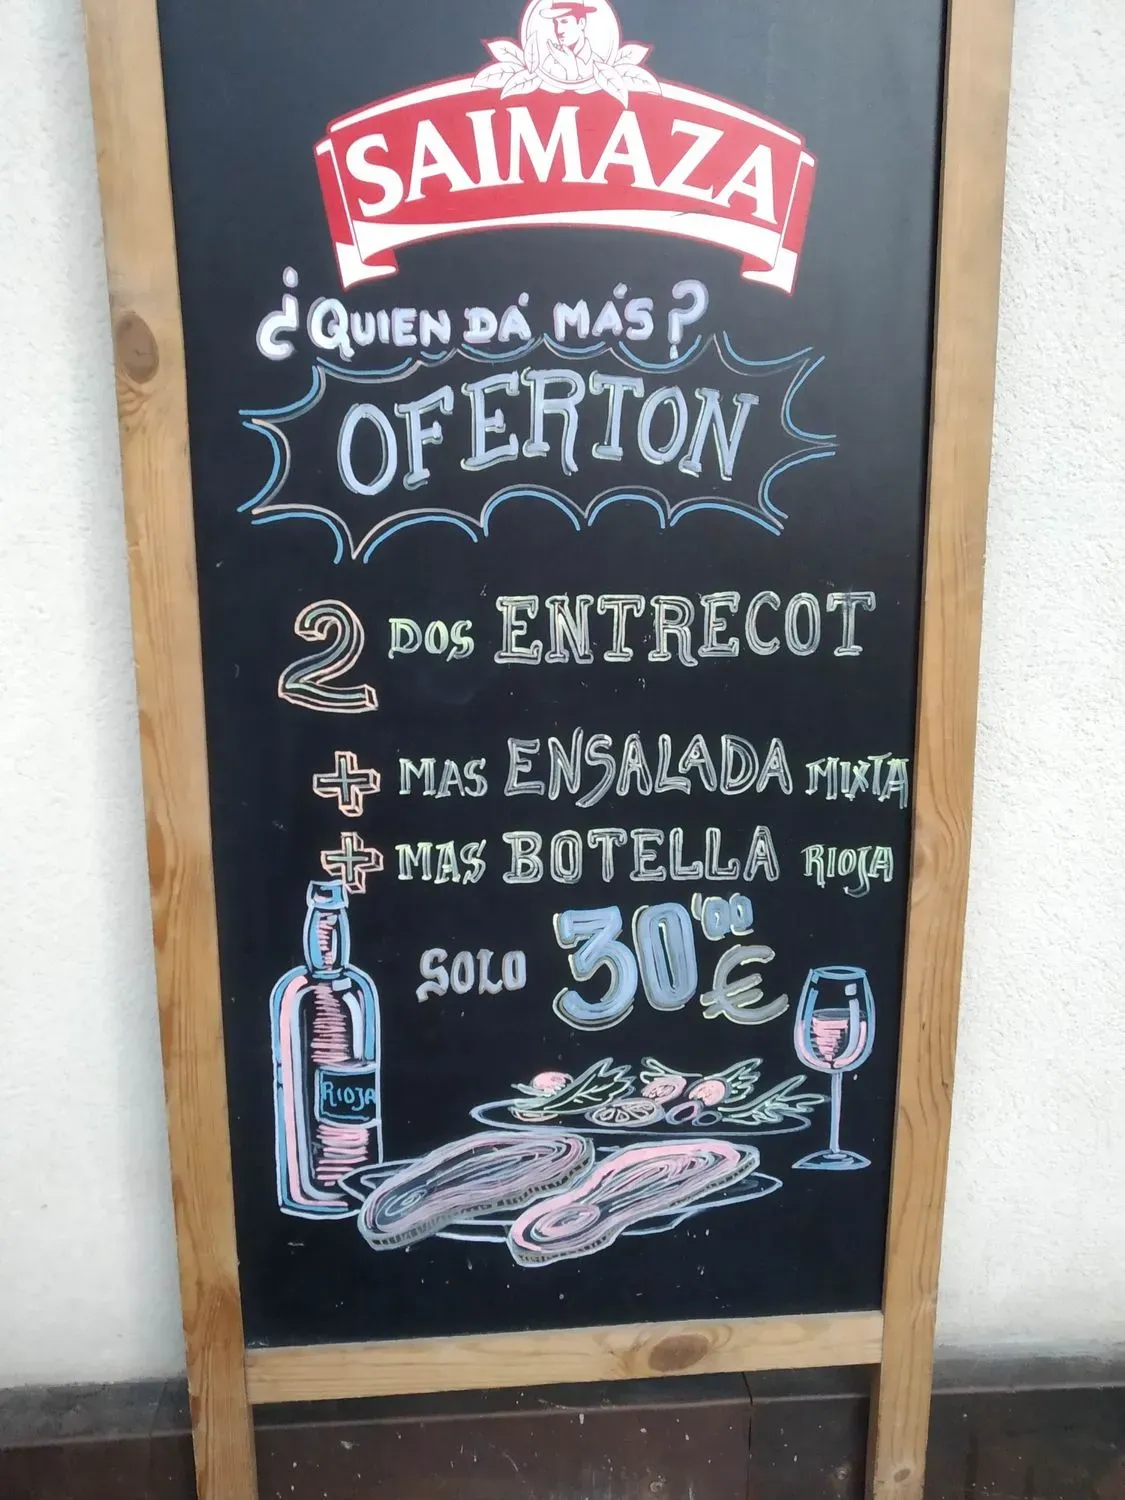 SAIMAZA
¿QUIEN DÁ MÁS?
OFERTON
2 DOS ENTRECOT
+ MAS ENSALADA MIXTA
+ MAS BOTELLA RIOJA
SOLO 30'00 €
RIOJA